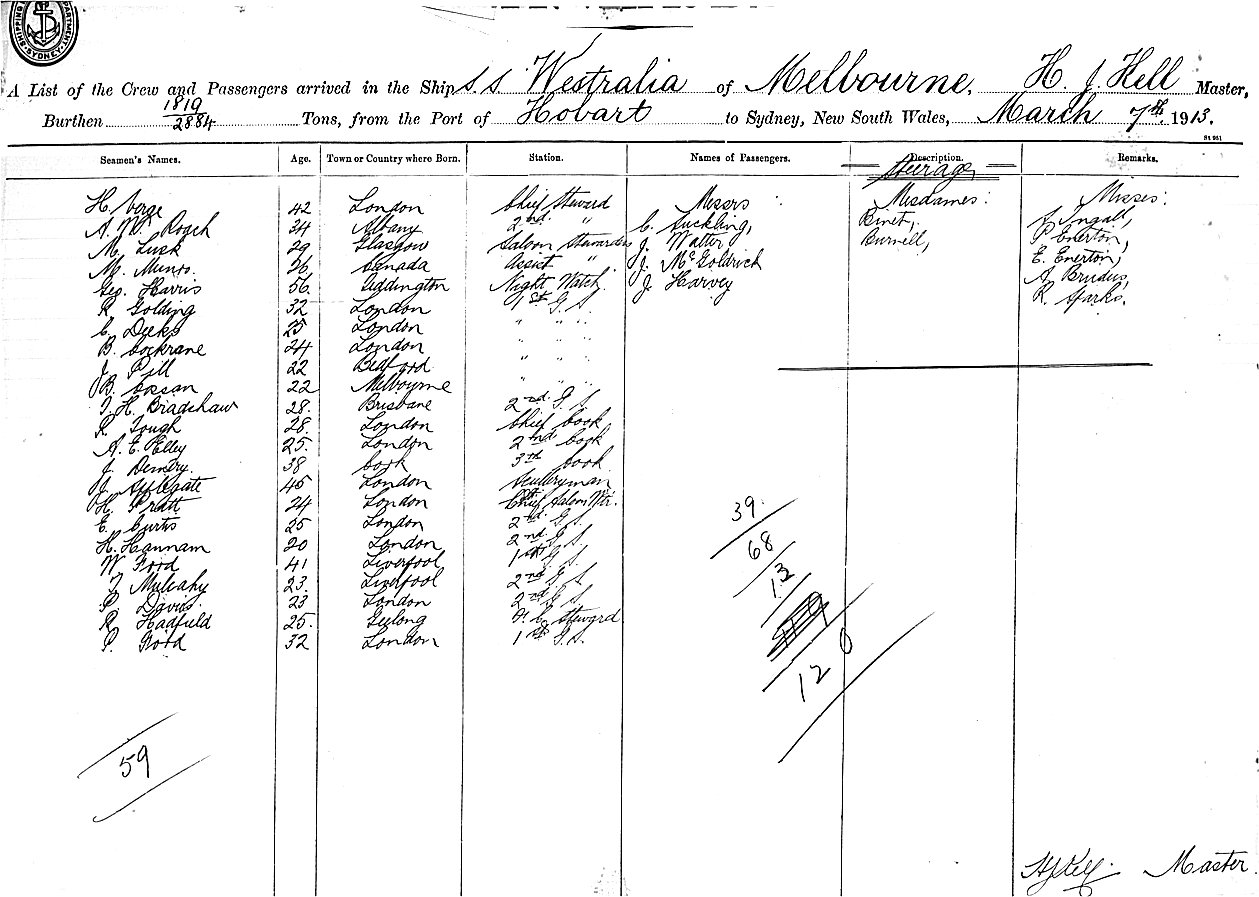 SHIPPING DEPARTMENT SYDNEY
A List of the Crew and Passengers arrived in the Ship S.S. Westralia of Melbourne, H. J. Kell Master,
Burthen 1819/2884 Tons, from the Port of Hobart to Sydney, New South Wales, March 7th 1913.
Seamen's Names. Age. Town or Country where Born. Station. Names of Passengers. Description. Remarks.
Steerage
H. 42 London Chief Steward Messrs : Misdames : Misses :
A. 34 Albany 2nd " C. Suckling, Binet, Ingall,
M. Lusk 29 Glasgow Saloon Stewardess J. Walter Burnell, P Enerton,
M. Munro. 26 Canada Assist " J. McGoldrick E. Enerton,
Geo. Harris 56 Addington Night Watch J. Harvey A.
R. Golding 32 London 1st G.S. R. Sparks.
C. Deeks 25 London " " "
B. Cockrane 24 London " " "
J. Pill 22 Bedford " " "
B. 22 Melbourne " " "
J. H. Bradshaw 28. Brisbane 2nd G.S
R. Tough 28. London Chief Cook
A. E. Elley 25. London 2nd Cook
J. Demery. 38 Cork 3th Cook
Applegate 45 London Sculleryman
H. Pratt 24 London Chief Saloon Wtr.
E. Curtis 25 London 2nd G.S
H. Hannam 20 London 2nd G.S
W Ford 41 Liverpool 1st G.S.
J. Mulcahy 23. Liverpool 2nd G.S
P. Davis. 23 London 2nd G.S
R. Hadfield 25. Geelong F. C. Steward
P. Ford 32 London 1st G.S.
39
68
13
120
59
H J Kell Master